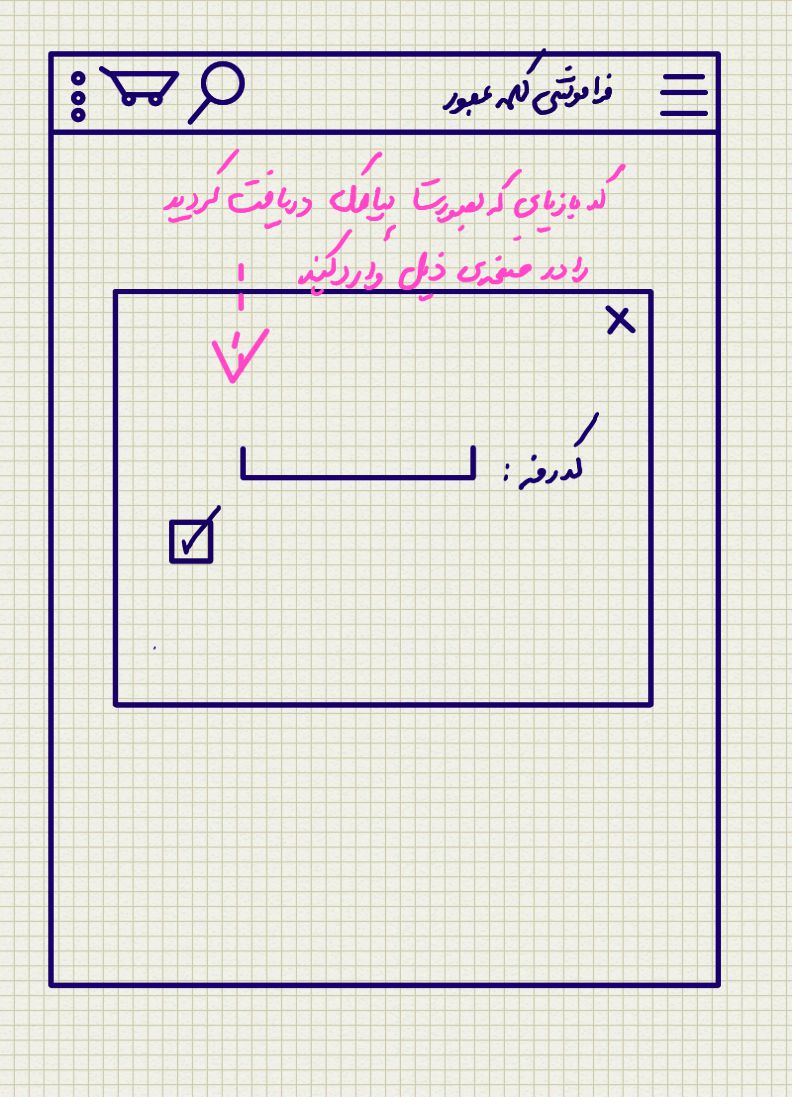 فراموشی کلمه عبور
کد بازیابی که بصورت پیامک دریافت کردید
را در صفحه‌ی ذیل وارد کنید
کد رمز :